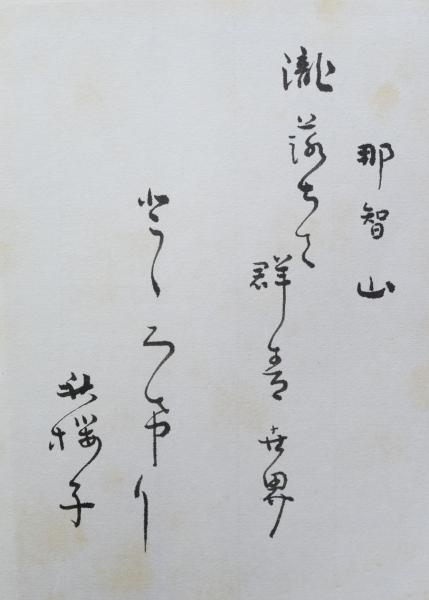 那智山
瀧落ちて
群青世界
とゞろけり
秋櫻子